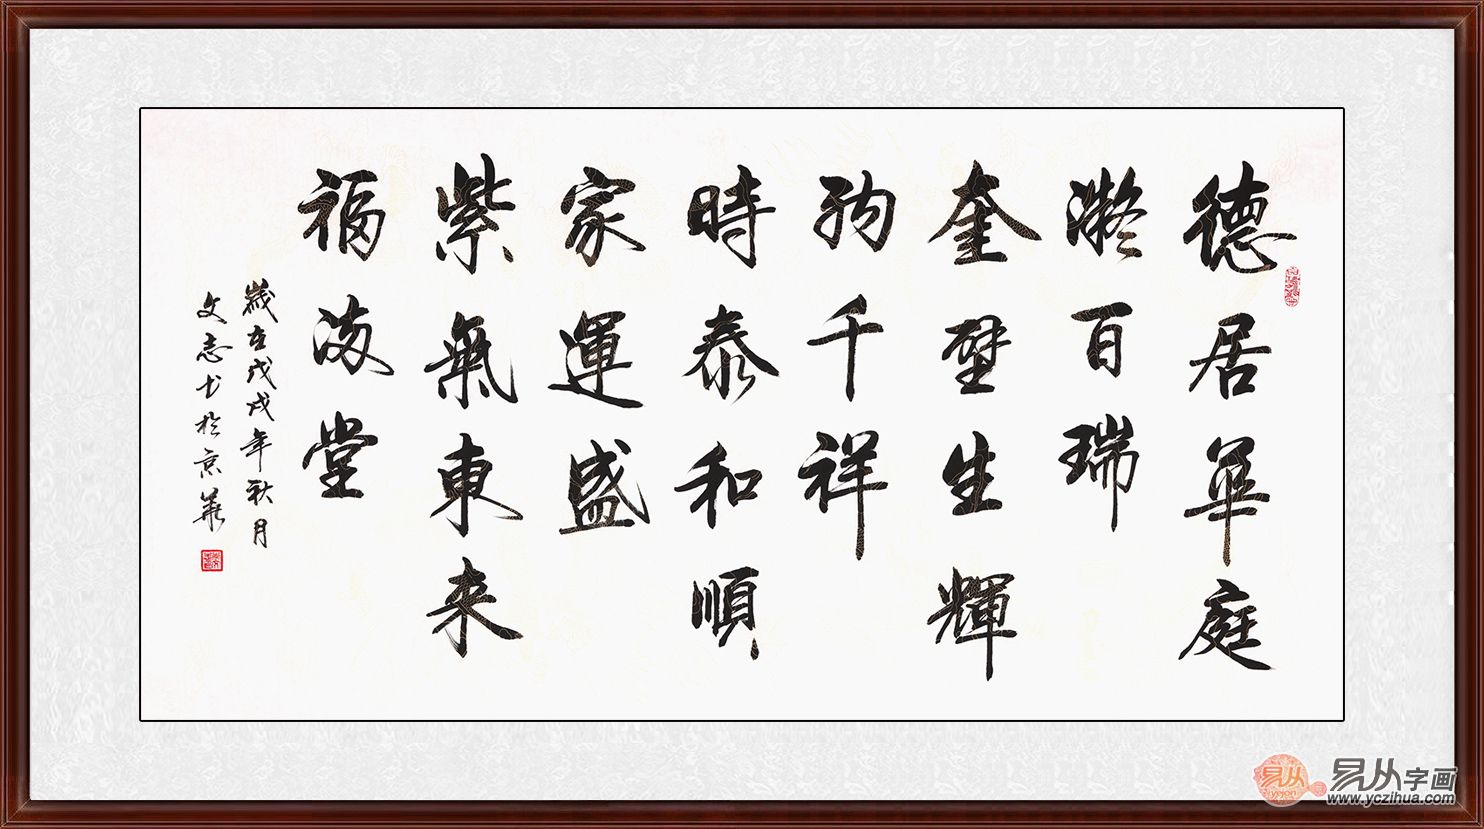 德居華庭
凝百瑞
奎壁生輝
納千祥
時泰和順
家運盛
紫氣東來
福滿堂
歲在戊戌年秋月
文志书於京華
易从
易从字画
www.yczihua.com